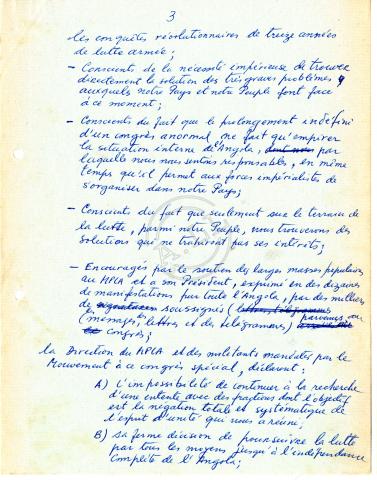 3
les conquêtes révolutionnaires de treize années
de lutte armée;
- Conscients de la nécessité impérieuse de trouver
directement la solution des très graves problèmes
auxquels notre Pays et notre Peuple font face
à ce moment;
- Conscients du fait que le prolongement indéfini
d'un congrès anormal ne fait qu'empirer
la situation interne de l'Angola, par
laquelle nous nous sentons responsables, en même
temps qu'il permet aux forces impérialistes de
s'organiser dans notre Pays;
- Conscients du fait que seulement sur le terrain de
la lutte, parmi notre Peuple, nous trouverons des
solutions qui ne trahiront pas ses intérêts;
- Encouragés par le soutien des larges masses populaires
au MPLA et à son Président, exprimé en des dizaines
de manifestations par toute l'Angola, par des milliers
de soussignés
(messages, lettres et des télégrammes) parvenus au
Congrès;
la Direction du MPLA et des militants mandatés par le
Mouvement à ce congrès spécial, déclarent:
A) L'impossibilité de continuer à la recherche
d'une entente avec des fractions dont l'objectif
est la négation totale et systématique de
l'esprit d'unité qui nous a réuni;
B) sa ferme décision de poursuivre la lutte
par tous les moyens jusqu'à l'indépendance
complète de l'Angola;